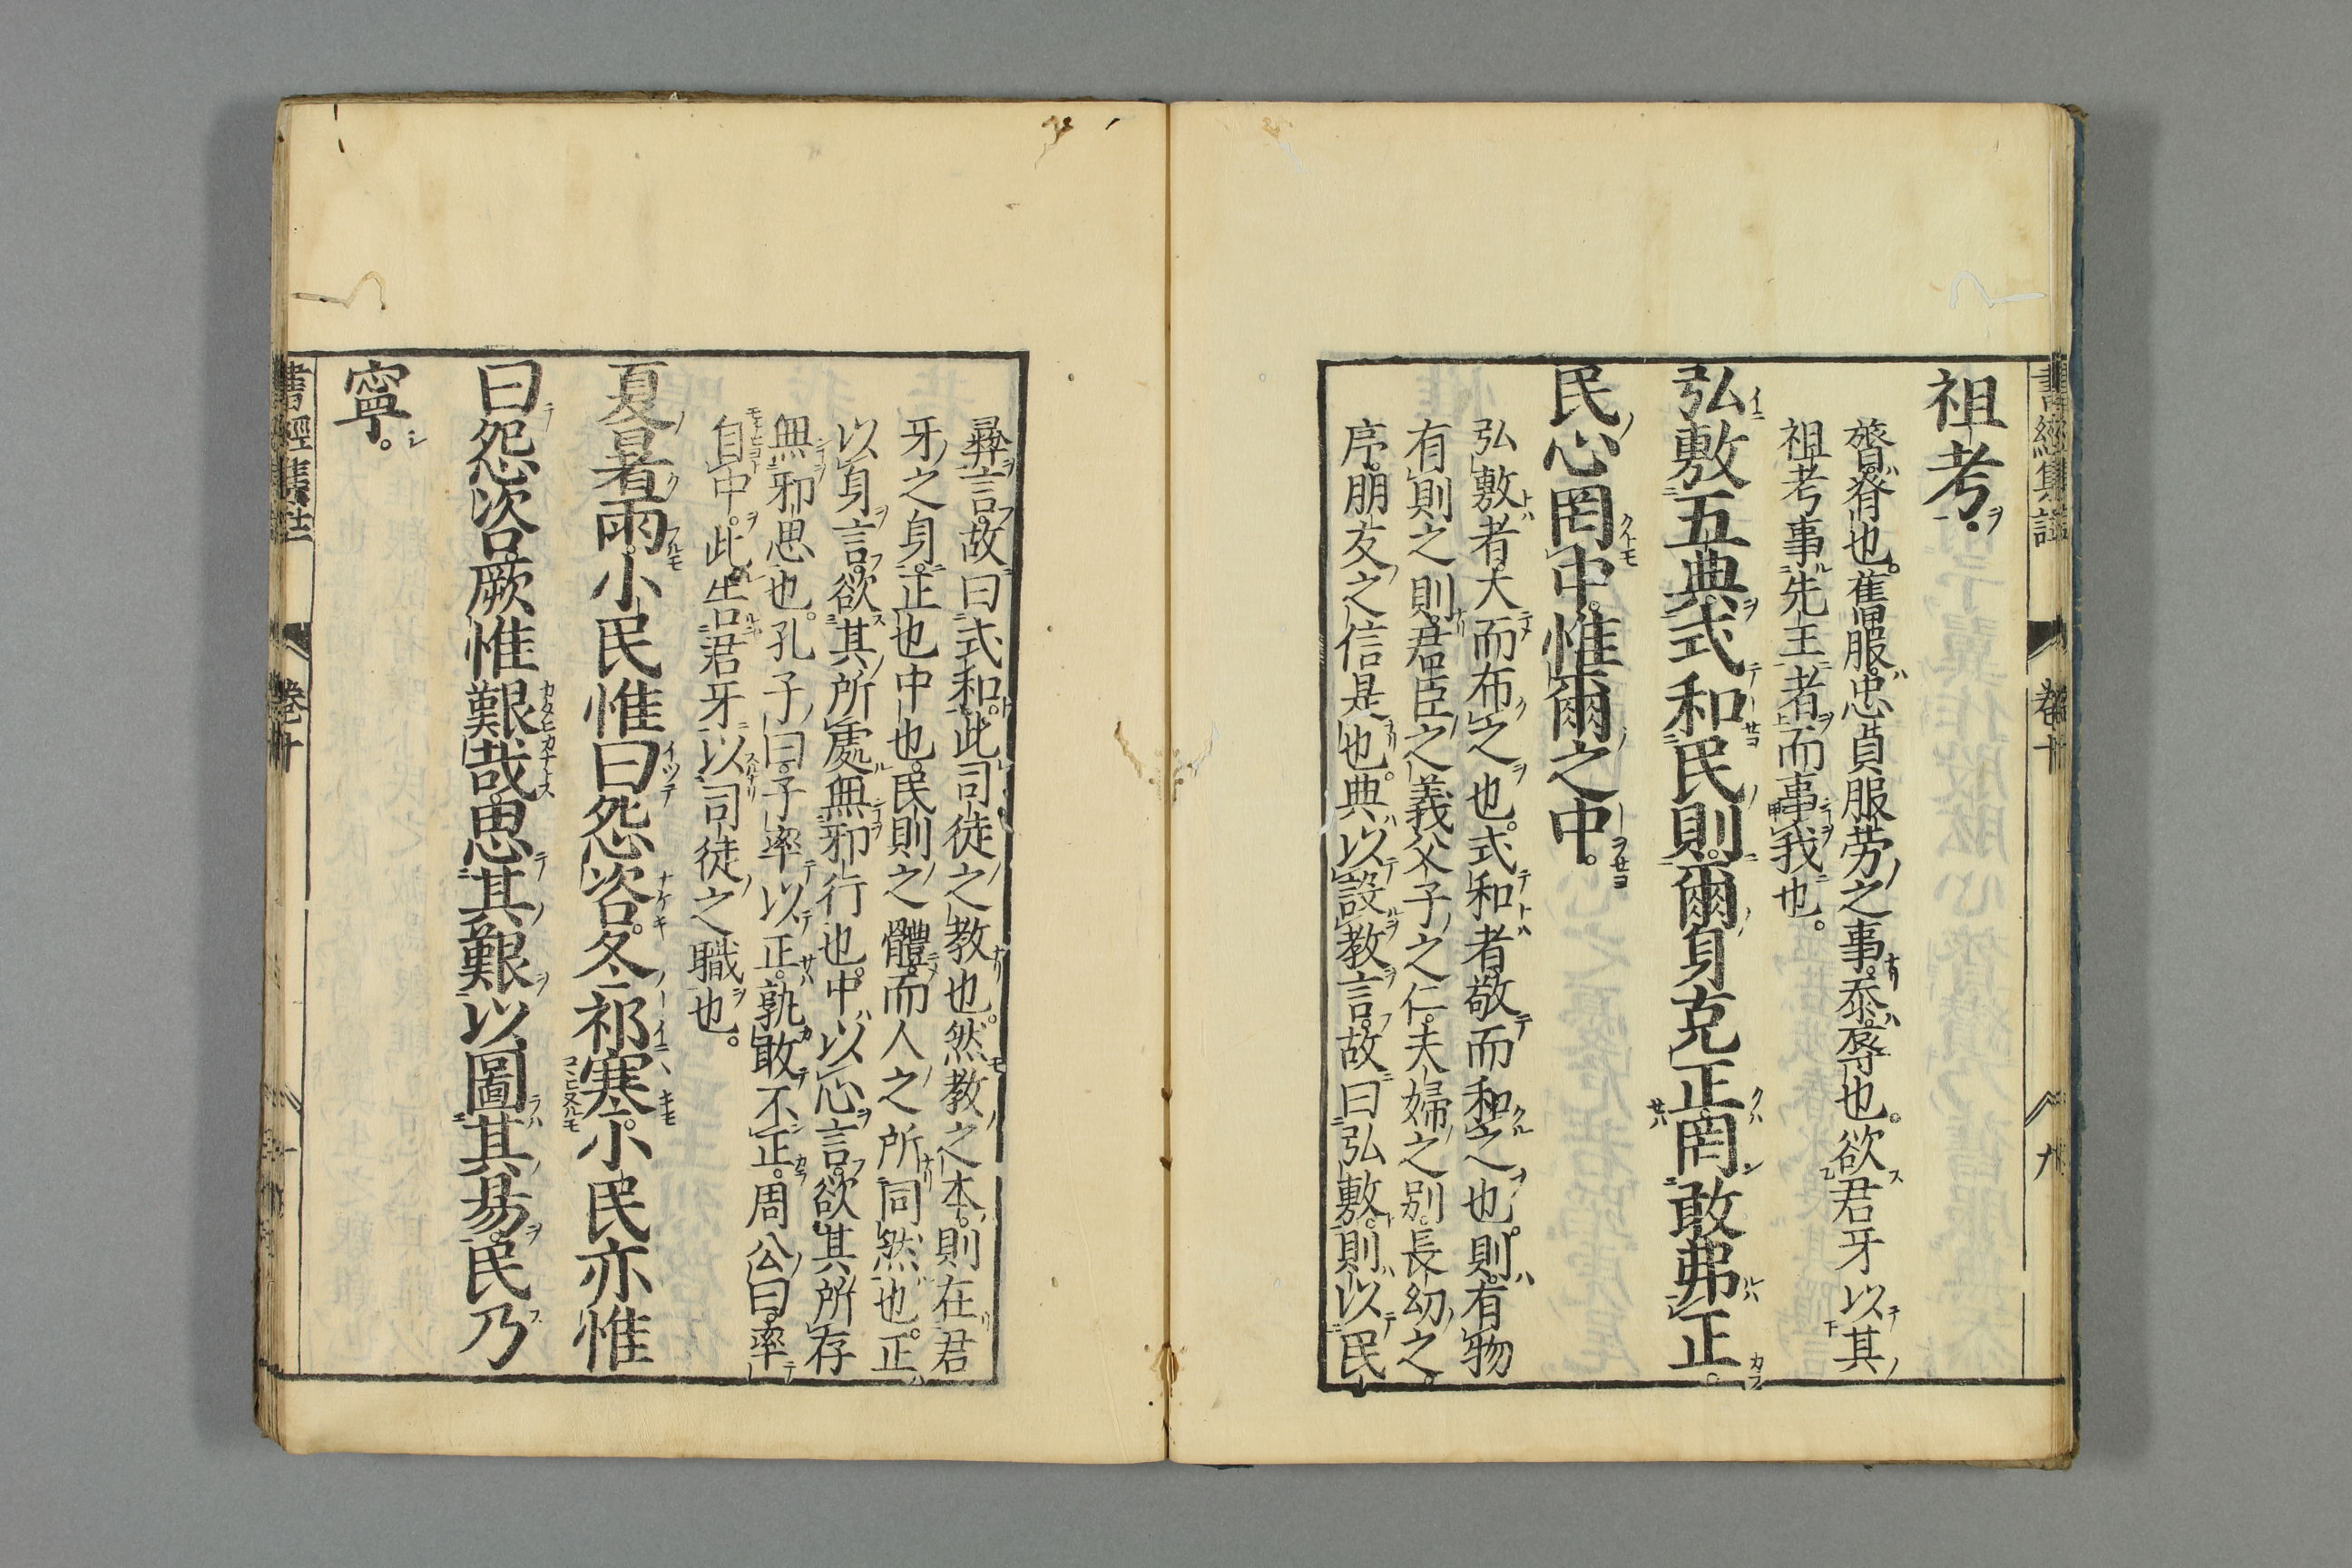 書經集註 卷十 九
祖考。
膂。脊也。舊服。忠貞服勞之事。忝。辱也。欲君牙以其
祖考事先王者。而事我也。
弘敷五典。式和民則。爾身克正。罔敢弗正。
民心罔中。惟爾之中。
弘敷者。大而布之也。式和者。敬而和之也。則。有物
有則之則。君臣之義。父子之仁。夫婦之別。長幼之
序。朋友之信是也。典。以設教言。故曰弘敷。則。以民
彝言。故曰式和。此司徒之教也。然教之本。則在君
牙之身。正也中也。民則之體。而人之所同然也。正。
以身言。欲其所處無邪行也。中。以心言。欲其所存
無邪思也。孔子曰。子率以正。孰敢不正。周公曰。率
自中。此告君牙以司徒之職也。
夏暑雨。小民惟曰怨咨。冬祁寒。小民亦惟
曰怨咨。厥惟艱哉。思其艱以圖其易。民乃
寧。
書經集註 卷十